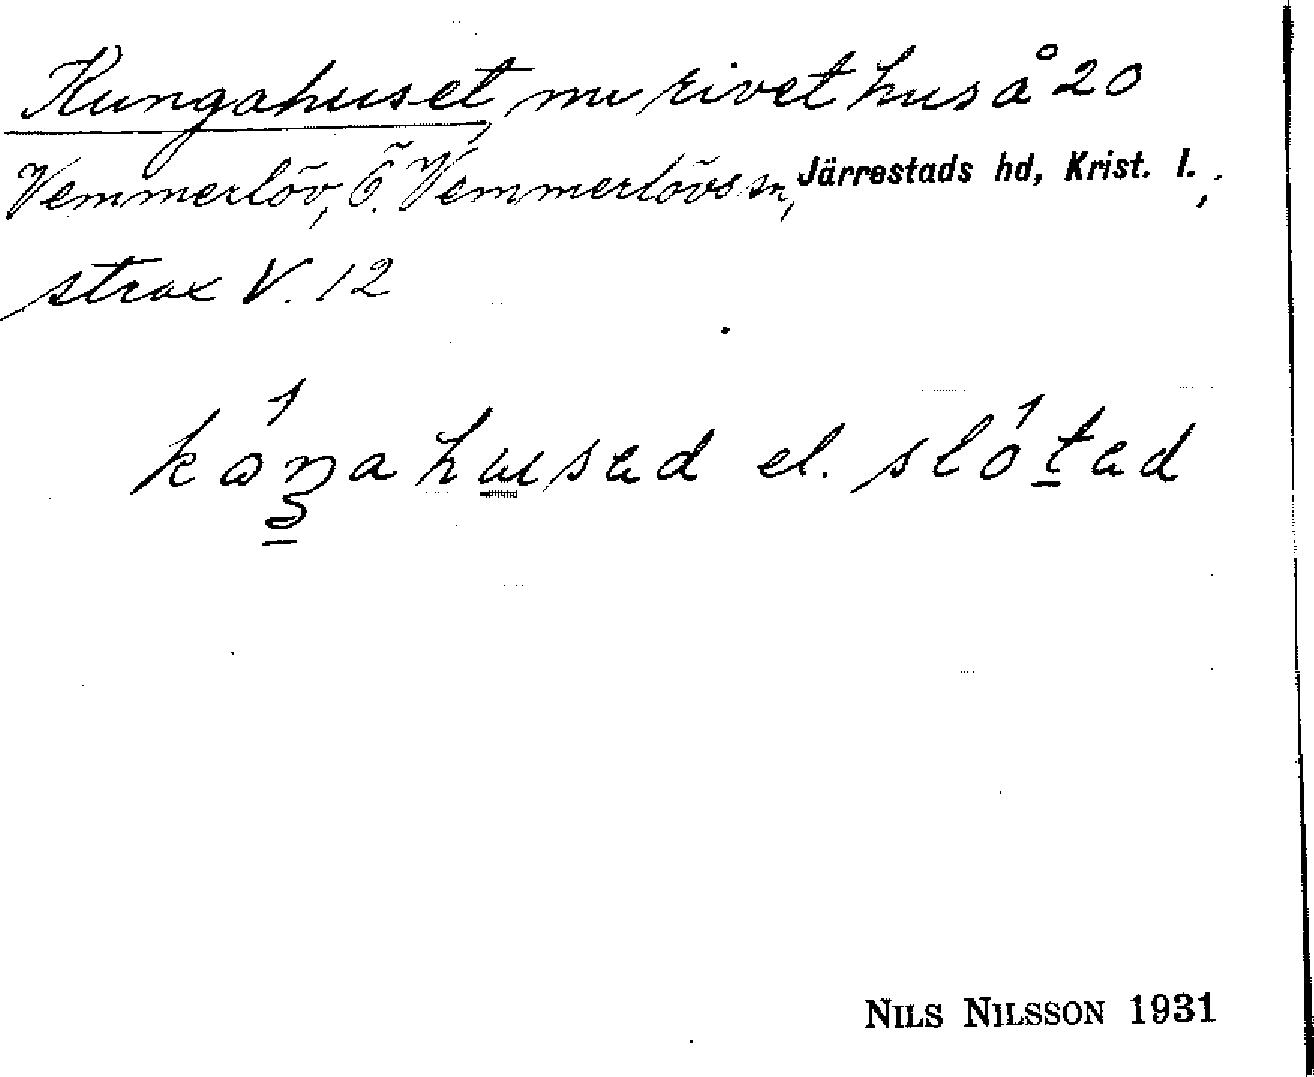 Kungahuset, nu rivet hus å 20
Vemmerlöv, Ö. Vemmerlövs sn, Järrestads hd, Krist. l.,
strax V. 12
kåŋahusad el. slótad
NILS NILSSON 1931